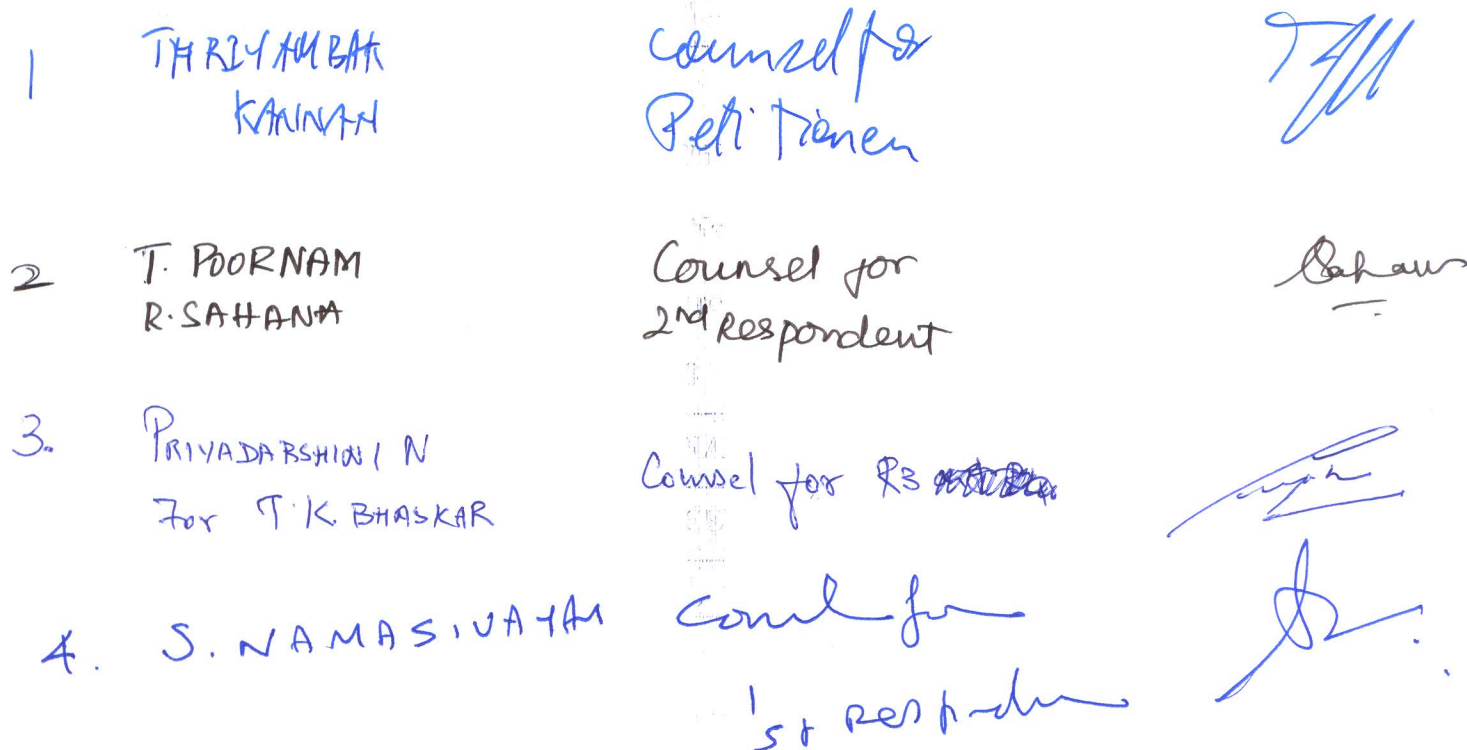 1 THRIYAMBAK Counsel for
KANNAN Petitioner
2 T. POORNAM Counsel for
R. SAHANA 2nd Respondent Sahana
3. PRIYADARSHINI N
For T.K. BHASKAR Counsel for R3
4. S. NAMASIVAYAM Counsel for
1st Respondent